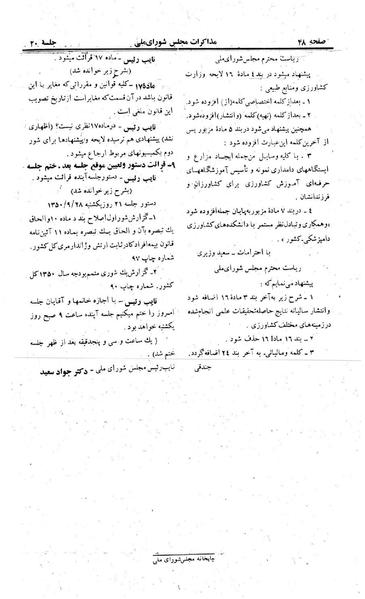 صفحه ۲۸
مذاکرات مجلس شورای ملی
جلسه ۲۰
ریاست محترم مجلس شورای ملی
پیشنهاد میشود در بند ۴ مادهٔ ۱۶ لایحه وزارت
کشاورزی و منابع طبیعی :
۱ ـ بعد از کلمه اختصاصی کلمه (از) افزوده شود.
۲ ـ بعد از کلمه (تهیه) کلمه (وانتشار) افزوده شود.
همچنین پیشنهاد می‌شود در بند ۵ مادهٔ مزبور پس
از آخرین کلمه این عبارت افزوده شود :
۳ ـ با کلیه وسایل من‌جمله ایجاد مزارع و
ایستگاههای دامداری نمونه و تأسیس آموزشگاههای
حرفه‌ای آموزش کشاورزی برای کشاورزان و
فرزندانشان .
۴ ـ در بند ۷ مادهٔ مزبور به پایان جمله افزوده شود
(وهمکاری و تبادل نظر مستمر با دانشکده‌های کشاورزی
دامپزشکی کشور) .
با احترامات ـ سعید وزیری
ریاست محترم مجلس شورای ملی
پیشنهاد می‌نمایم که :
۱ ـ شرح زیر به آخر بند ۳ مادهٔ ۱۶ اضافه شود
وانتشار سالیانه نتایج حاصله تحقیقات علمی انجام شده
در زمینه‌های مختلف کشاورزی .
۲ ـ بند ۱۶ مادهٔ ۱۶ حذف شود .
۳ ـ کلمه ومالیاتی. به آخر بند ۲۴ اضافه گردد.
جندقی
نایب رئیس ـ ماده ۱۷ قرائت میشود .
(بشرح زیر خوانده شد)
ماده۱۷ ـ کلیه قوانین و مقرراتی که مغایر با این
قانون باشد در آن قسمت که مغایر است از تاریخ تصویب
این قانون ملغی است .
نایب رئیس ـ در ماده ۱۷ نظری نیست؟ (اظهاری
نشد) پیشنهادی هم نرسیده لایحه و پیشنهادها برای شور
دوم بکمیسیونهای مربوط ارجاع میشود.
۹ـ قرائت دستور و تعیین موقع جلسه بعد ـ ختم جلسه
نایب رئیس ـ دستور جلسه آینده قرائت میشود .
(بشرح زیر خوانده شد)
دستور جلسه ۲۱ روز یکشنبه ۱۳۵۰/۹/۲۸
۱ـ گزارش شور اول اصلاح بند د ماده ۱۰ و الحاق
یك تبصره بآن و الحاق یك تبصره بماده ۱۱ آئین‌نامه
قانون بیمه افراد کادر ثابت ارتش و ژاندارمری کل کشور.
شماره چاپ ۹۷
۲ـ گزارش یك شوری متمم بودجه سال ۱۳۵۰ کل
کشور. شماره چاپ ۹۰
نایب رئیس ـ با اجازه خانمها و آقایان جلسه
امروز را ختم میکنیم جلسه آینده ساعت ۹ صبح روز
یکشنبه خواهد بود.
( یك ساعت و سی و پنج دقیقه بعد از ظهر جلسه
ختم شد).
نایب رئیس مجلس شورای ملی ـ دکتر جواد سعید
چاپخانه مجلس شورای ملی